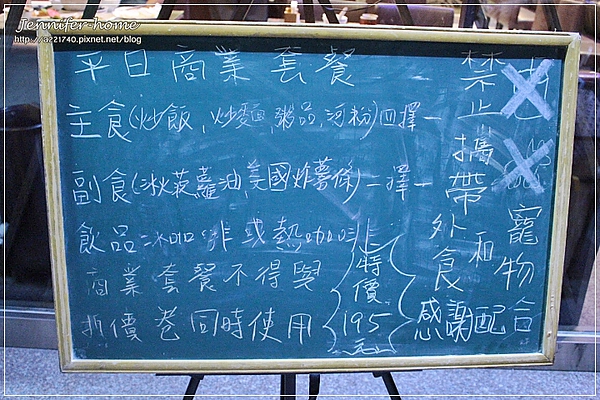 Jennifer-home
http://a221740.pixnet.net/blog
平日商業套餐
主食(炒飯,炒麵,粥品,河粉)四擇一
副食(冰菠蘿油,美國炸薯條)二擇一
飲品:冰咖啡或熱咖啡
商業套餐不得與
折價卷同時使用
特價
195
元
禁止攜帶外食
和寵物
感謝配合